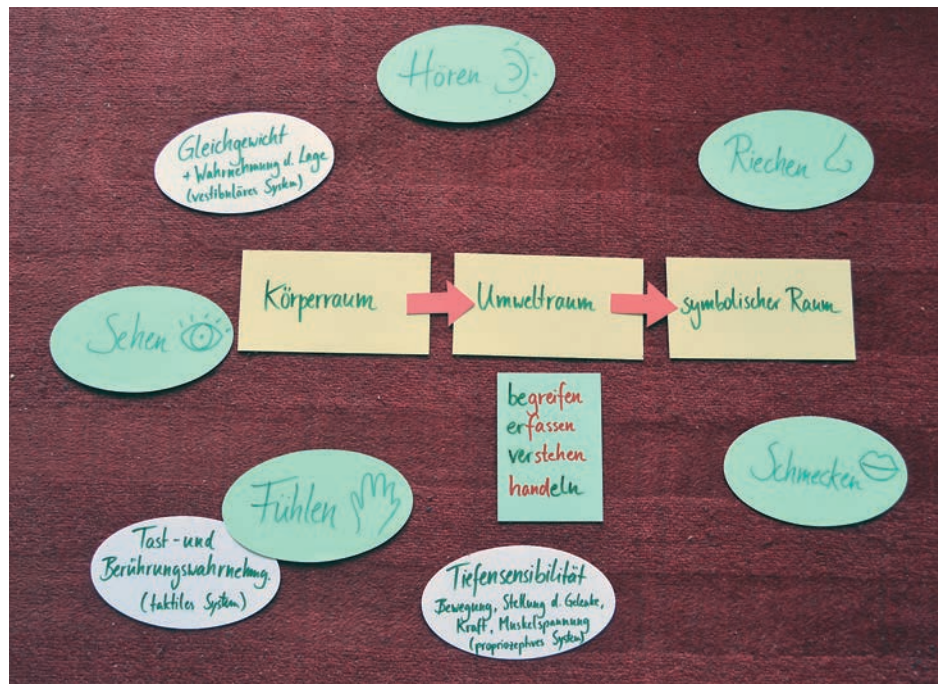 Hören
Gleichgewicht
+ Wahrnehmung d. Lage
(vestibuläres System)
Riechen
Körperraum
Umweltraum
symbolischer Raum
Sehen
begreifen
erfassen
verstehen
handeln
Schmecken
Fühlen
Tast- und
Berührungswahrnehmung.
(taktiles System)
Tiefensensibilität
Bewegung, Stellung d. Gelenke,
Kraft, Muskelspannung
(propriozeptives System)